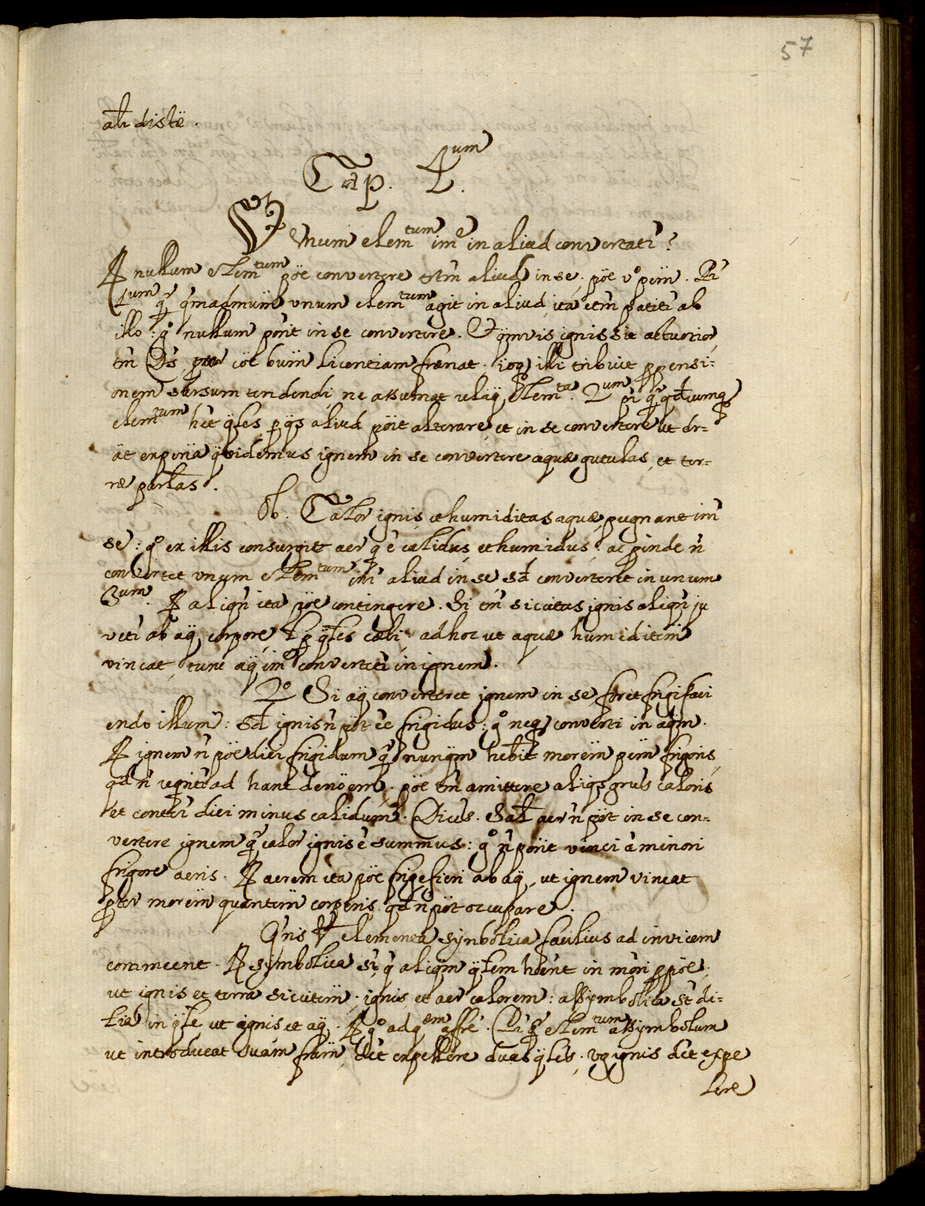 57
alr distē.
Cap. 4um
Vnum elemtum imo in aliud convertatr?
R nullum elemtum pōe convertere totm aliud in se. pōe vo pem. Pr
1um qa qmadmum vnum elemtum agit in aliud, ita etm patitr ab
illo: go nullum pōrit in se convertere. Et qmvis ignis sit actuosior
tn Ds, licentiam frænat. illi tribuit ppensi:
onem sursum tendendi ne assumat reliq elemta. 2um pr qa qdcumq
elemtum hēt qltes p qs aliud pōit alterare, et in se convertere ut
āt expriā q videmus ignem in se convertere aquæ gutulas, et ter-
ræ partlas.
Ob. Calor ignis et humiditas aquæ pugnant intr
se: go ex illis consurgit aer q ē calidus, et humidus: ac pinde n
convertet vnum elemtum aliud in se sd convertent in unum
3um. R aliqn ita pōe contingere. Si tn siccitas ignis aliqn ju
vetr ab aq corpore l p qltes cœli ad hoc ut aquæ humiditem
vincat, tunc aq imo convertetr in ignem.
2o Si aq converteret ignem in se foret frigifaci
endo illum: Sd ignis n pōt ēe frigidus: go neq converti in aqm.
R ignem n pōe dici frigidum qa nunqm hēbit morem pem frigoris
qd n reqritr ad hanc denōem. pōe tn amittere aliqs grus caloris
et conseqr dici minus calidum. Dices. Saltm aer n pōt in se con-
vertere ignem qa calor ignis ē summus: go n pōrit vinci a minori
frigore aeris. R aerem ita pōe frigefieri ab aq, ut ignem vincat
pter morem quantem corporis qd n pōt occupare.
Qris elementa symbolica facilius ad invicem
commeent. R symbolica st q aliqm qltem hent in mori ppōe;
ut ignis et terra siccitem. ignis et aer calorem: assymbolica st di-
stia in qlte ut ignis et aq. R go ad qem affre. Pr qa elemtum assymbolum
ut introducat suam fram, dēt expellere duas qltes. vg ignis dēt expe
lere